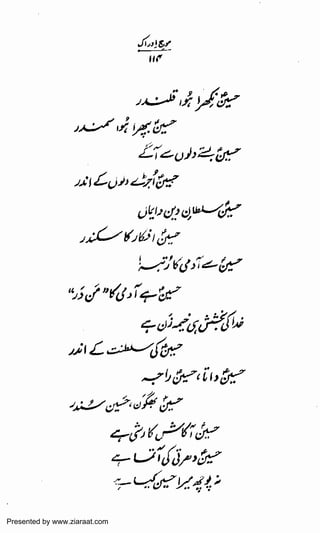 موجِ ادراک
۱۱۴
حسینؑ بکھرا ہُوا قلندر
حسینؑ بپھرا ہُوا سمندر
حسینؑ بستے دلوں سے آگے
حسینؑ اُجڑے دلوں کے اندر
حسینؑ سلطانِ دین و ایماں
حسینؑ افکار کا سکندر
حسینؑ سے آدمی کا رتبہ!
حسینؑ ہے آدمی کا "
خدا کی بخشش ہی خیمہ زن ہے
حسینؑ کی سلطنت کے اندر
حسینؑ داتا، حسینؑ راجہ
حسینؑ بھگوان، حسینؑ سُندر
حسینؑ آکاش کا رشی ہے
حسینؑ دھرتی کی آتما ہے
نہ پوچھ میرا حسینؑ کیا ہے
Presented by www.ziaraat.com